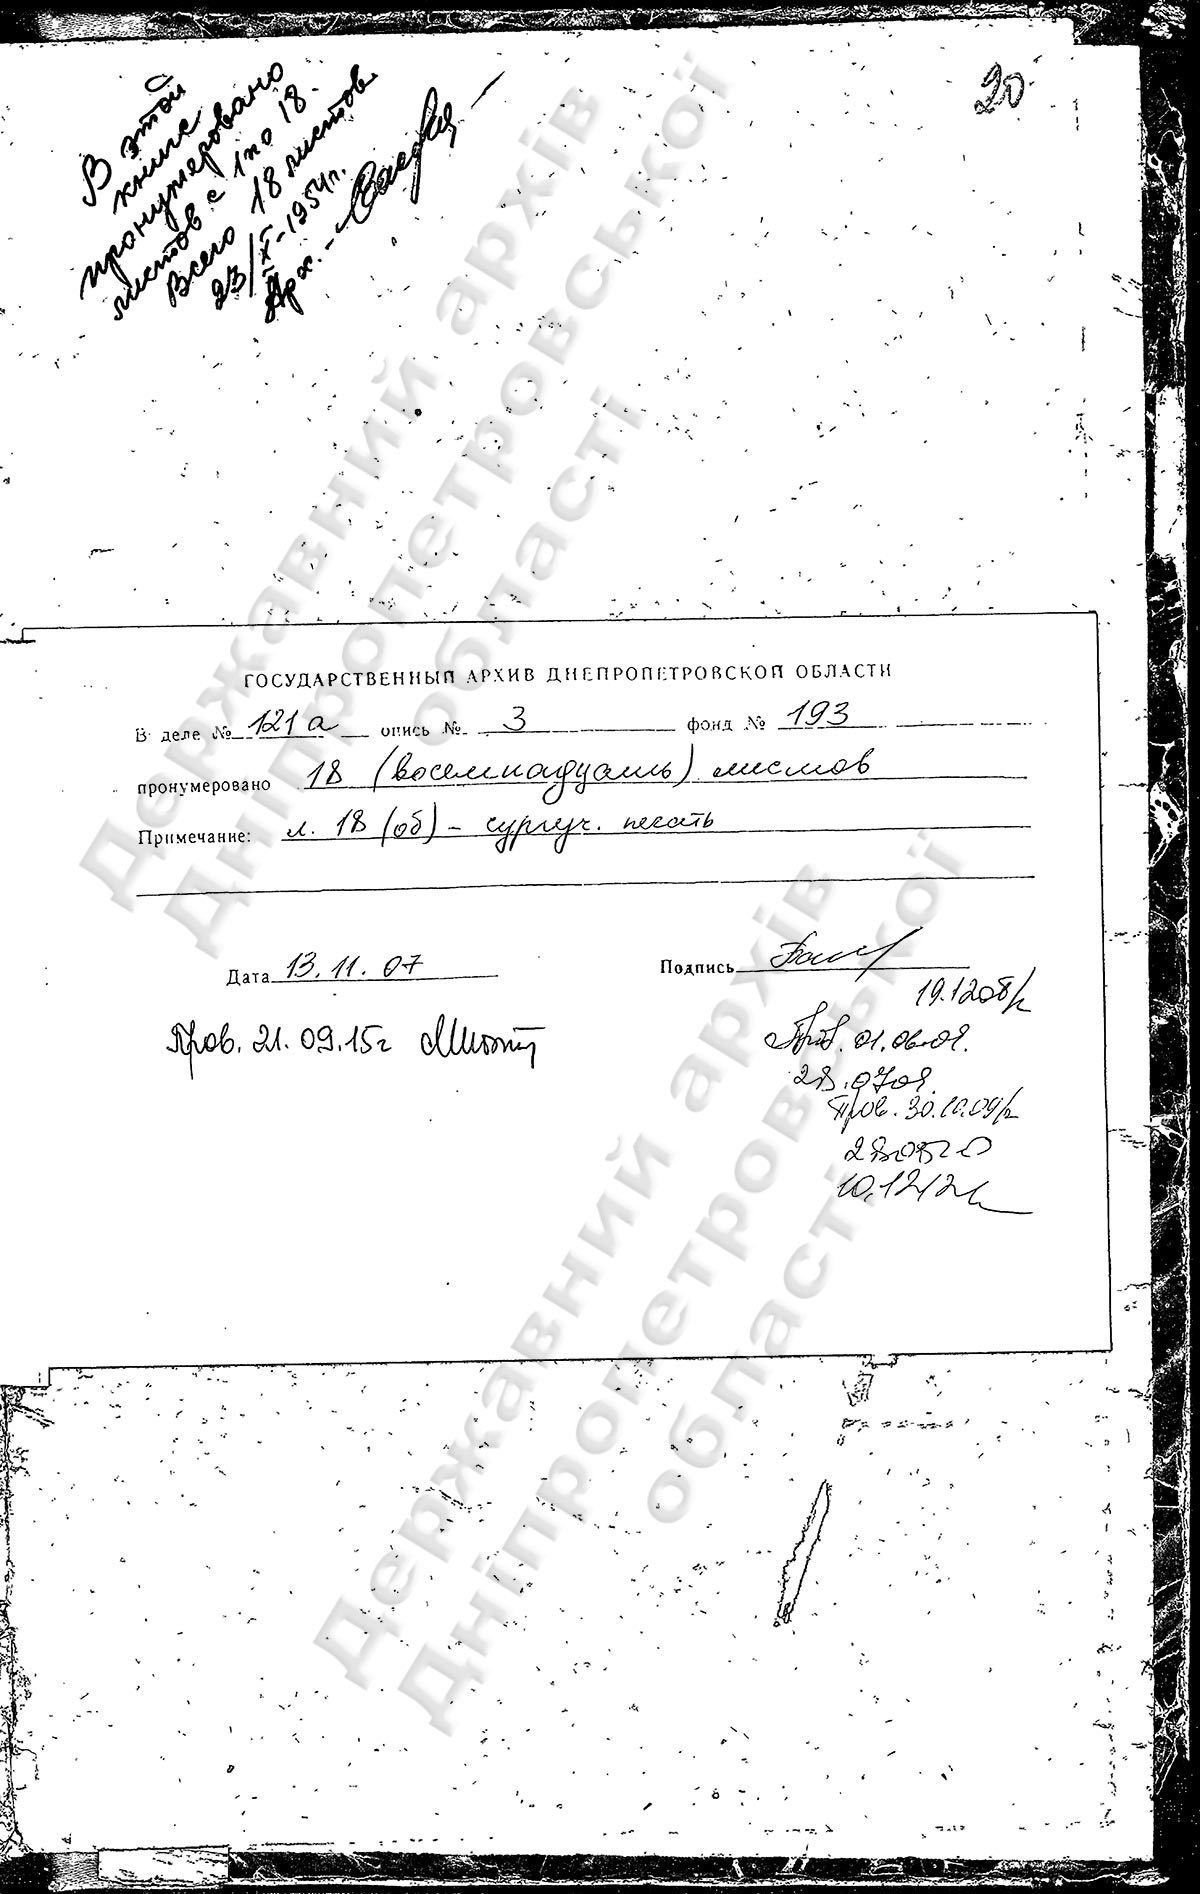 20
В этой
книге
пронумеровано
листов с 1 по 18.
Всего 18 листов
23/X-1954г.
Арх. -
ГОСУДАРСТВЕННЫЙ АРХИВ ДНЕПРОПЕТРОВСКОЙ ОБЛАСТИ
В деле № 121а опись № 3 фонд № 193
пронумеровано 18 (восемнадцать) листов
Примечание: л. 18 (об) – сургуч. печать
Дата 13.11.07 Подпись
19.12.08
Пров. 21.09.15г
Пров. 01.06.09.
28.07.09.
Пров. 30.10.09
10.12.12
Державний архів
Дніпропетровської
області
Державний архів
Дніпропетровської
області